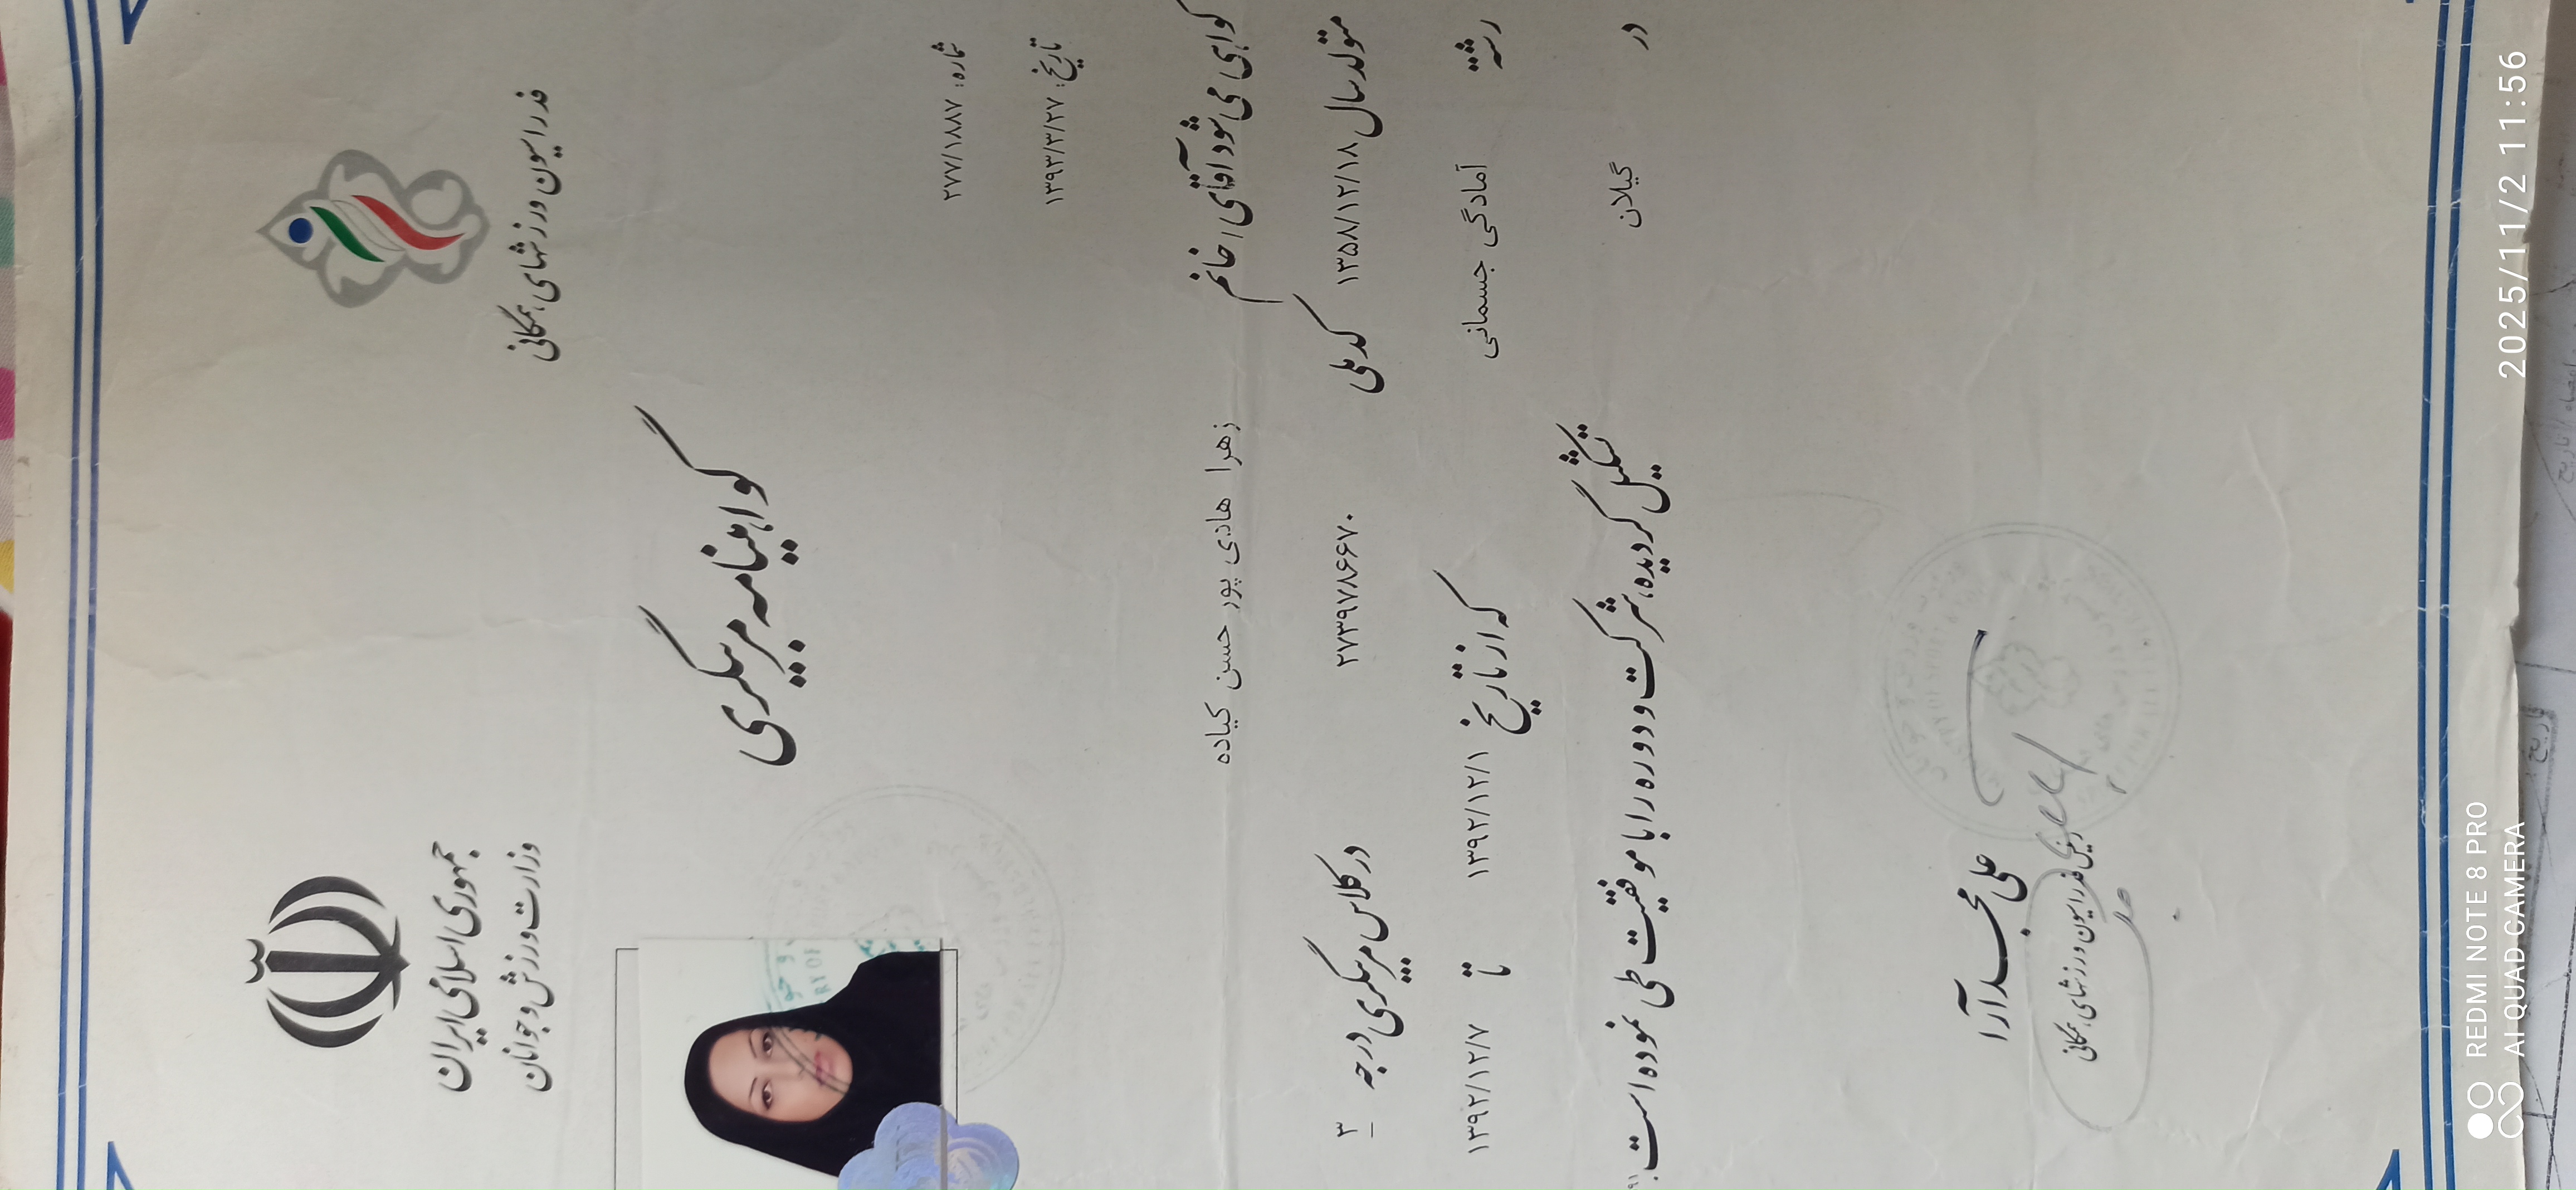 جمهوری اسلامی ایران
وزارت ورزش و جوانان
فدراسیون ورزشهای همگانی
گواهینامه مربیگری
شماره: ۲۷۷/۱۸۸۷
تاریخ: ۱۳۹۳/۳/۲۷
گواهی می شود آقای/خانم زهرا هادی پور حسن کیاده
متولد سال ۱۳۵۸/۱۲/۱۸ کد ملی ۲۷۳۹۷۸۶۶۷۰ در کلاس مربیگری درجه ۳
رشته آمادگی جسمانی که از تاریخ ۱۳۹۲/۱۲/۱ تا ۱۳۹۲/۱۲/۷
در گیلان تشکیل گردیده، شرکت و دوره را با موفقیت طی نموده است.
علی مجدآرا
رئیس فدراسیون ورزشهای همگانی
REDMI NOTE 8 PRO
AI QUAD CAMERA
2025/11/2 11:56